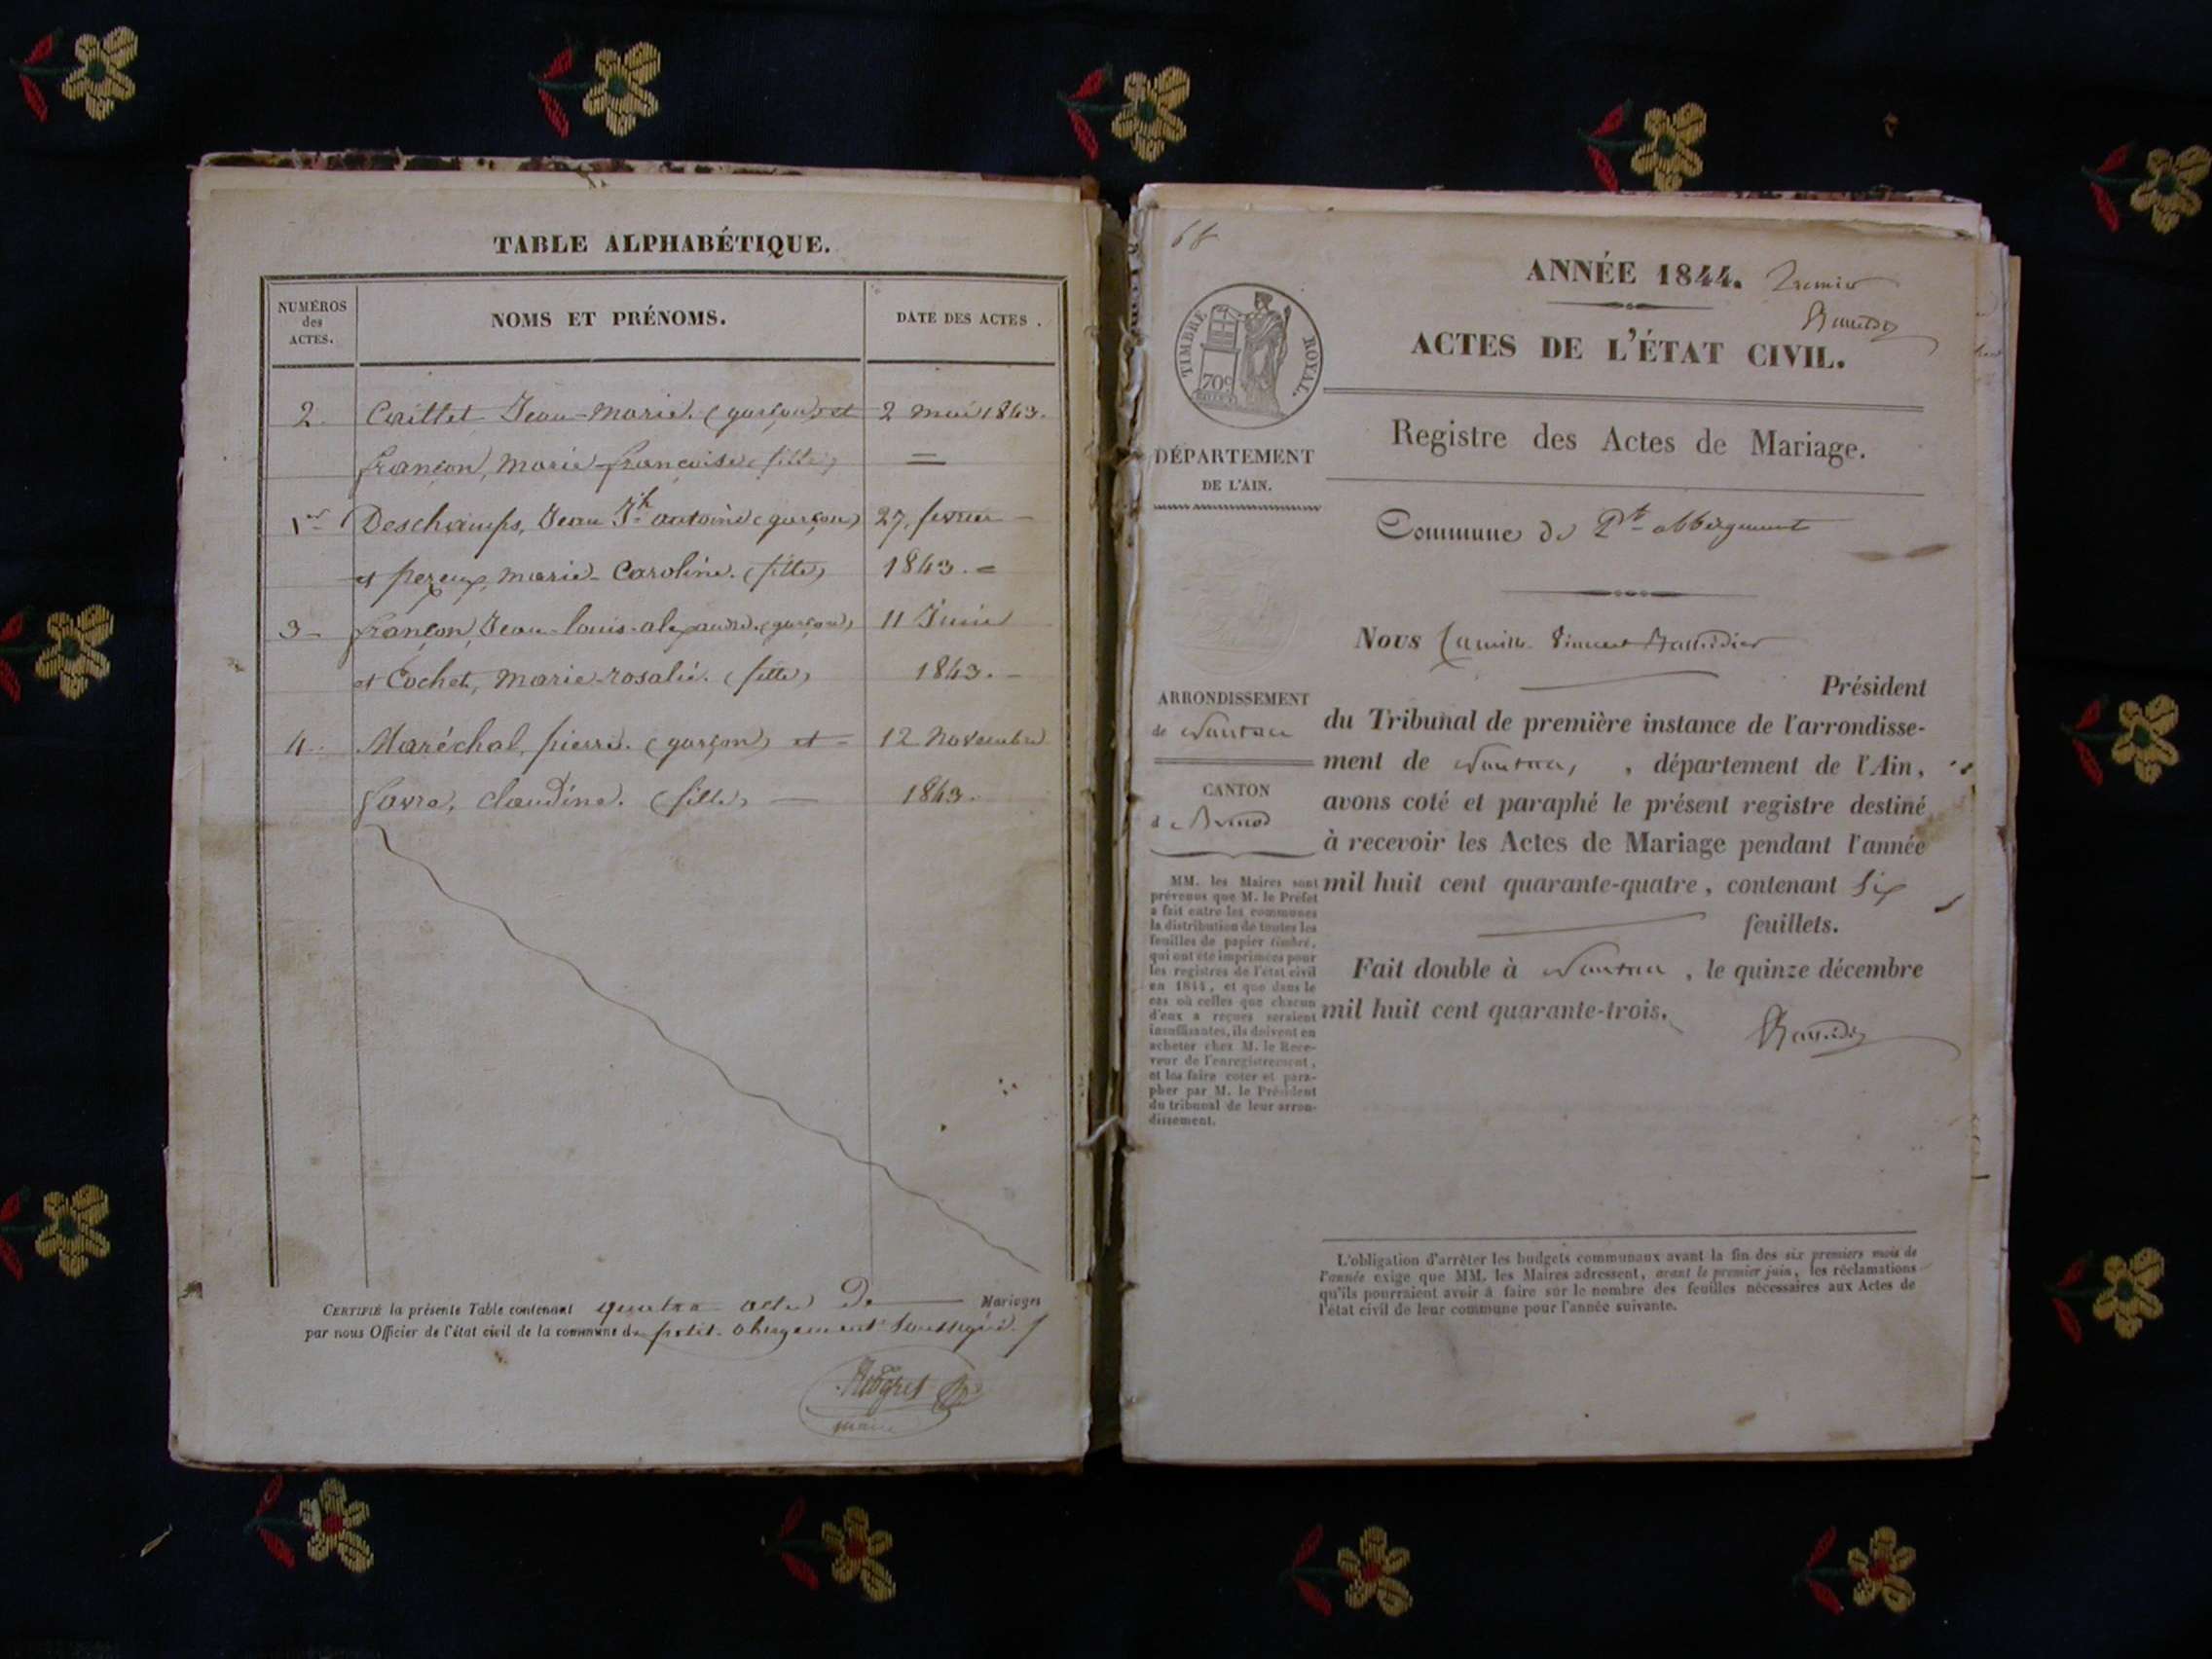 TABLE ALPHABÉTIQUE.
NUMÉROS
des
ACTES.
NOMS ET PRÉNOMS.
DATE DES ACTES.
2. Caillet Jean-Marie. (garçon) et 2 mai 1843.
françon, marie-françoise (fille) =
1er Deschamps, Jean Jh antoine (garçon) 27, fevrier
et pereux, marie-Caroline. (fille) 1843. =
3 françon, Jean-louis-alexandre. (garçon) 11 Juin
et Cochet, marie-rosalie. (fille) 1843. -
4. Maréchal, pierre. (garçon) et 12 Novembre
favre, claudine. (fille) 1843.
CERTIFIÉ la présente Table contenant quatre actes De Mariages
par nous Officier de l'état civil de la commune de petit-abergement
maire
68
ANNÉE 1844. Premier
ACTES DE L'ÉTAT CIVIL.
TIMBRE ROYAL.
70c
DÉPARTEMENT
DE L'AIN.
Registre des Actes de Mariage.
Commune de Pt abbergement
Nous Camille Vincent
Président
ARRONDISSEMENT
de Nantua
du Tribunal de première instance de l'arrondisse-
ment de Nantua, , département de l'Ain,
avons coté et paraphé le présent registre destiné
à recevoir les Actes de Mariage pendant l'année
mil huit cent quarante-quatre, contenant Six
feuillets.
Fait double à Nantua, le quinze décembre
mil huit cent quarante-trois.
CANTON
de Brenod
MM. les Maires sont
prévenus que M. le Préfet
a fait entre les communes
la distribution de toutes les
feuilles de papier timbré,
qui ont été imprimées pour
les registres de l'état civil
en 1844, et que dans le
cas où celles que chacun
d'eux a reçues seraient
insuffisantes, ils doivent en
acheter chez M. le Rece-
veur de l'enregistrement,
et les faire coter et para-
pher par M. le Président
du tribunal de leur arron-
dissement.
L'obligation d'arrêter les budgets communaux avant la fin des six premiers mois de
l'année exige que MM. les Maires adressent, avant le premier juin, les réclamations
qu'ils pourraient avoir à faire sur le nombre des feuilles nécessaires aux Actes de
l'état civil de leur commune pour l'année suivante.